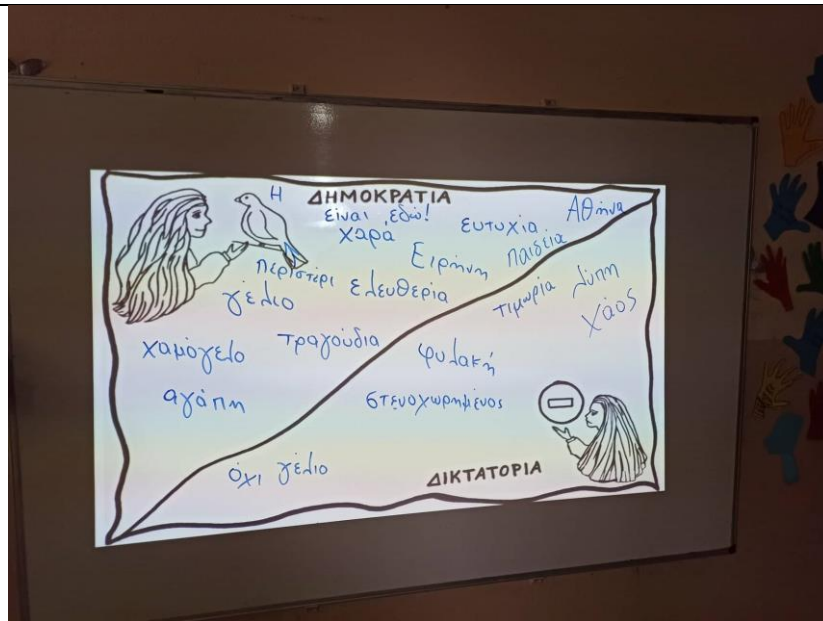 Η ΔΗΜΟΚΡΑΤΙΑ
είναι εδώ!
ευτυχία
Αθήνα
χαρά
Ειρήνη
παιδεία
περιστέρι
γέλιο
ελευθερία
χαμόγελο
τραγούδια
αγάπη
τιμωρία
λύπη
χάος
φυλακή
στενοχωρημένος
όχι γέλιο
ΔΙΚΤΑΤΟΡΙΑ